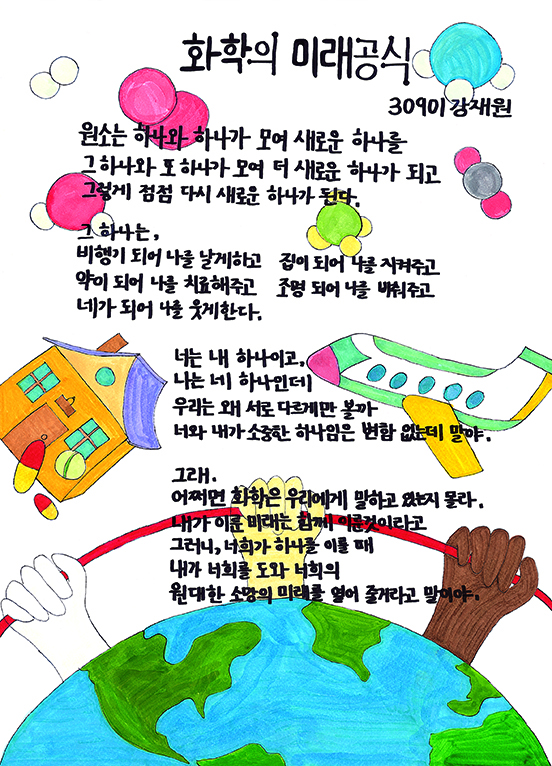 화학의 미래공식
30901 강재원
원소는 하나와 하나가 모여 새로운 하나를
그 하나와 또 하나가 모여 더 새로운 하나가 되고
그렇게 점점 다시 새로운 하나가 된다.
그 하나는,
비행기 되어 나를 날게하고 집이 되어 나를 지켜주고
약이 되어 나를 치료해주고 조명 되어 나를 비춰주고
네가 되어 나를 웃게한다.
너는 내 하나이고,
나는 네 하나인데
우리는 왜 서로 다르게만 볼까
너와 내가 소중한 하나임은 변함 없는데 말야.
그래.
어쩌면 화학은 우리에게 말하고 있는지 몰라.
내가 이룬 미래는 함께 이룬것이라고
그러니, 너희가 하나를 이룰 때
내가 너희를 도와 너희의
원대한 소망의 미래를 열어 줄거라고 말이야.